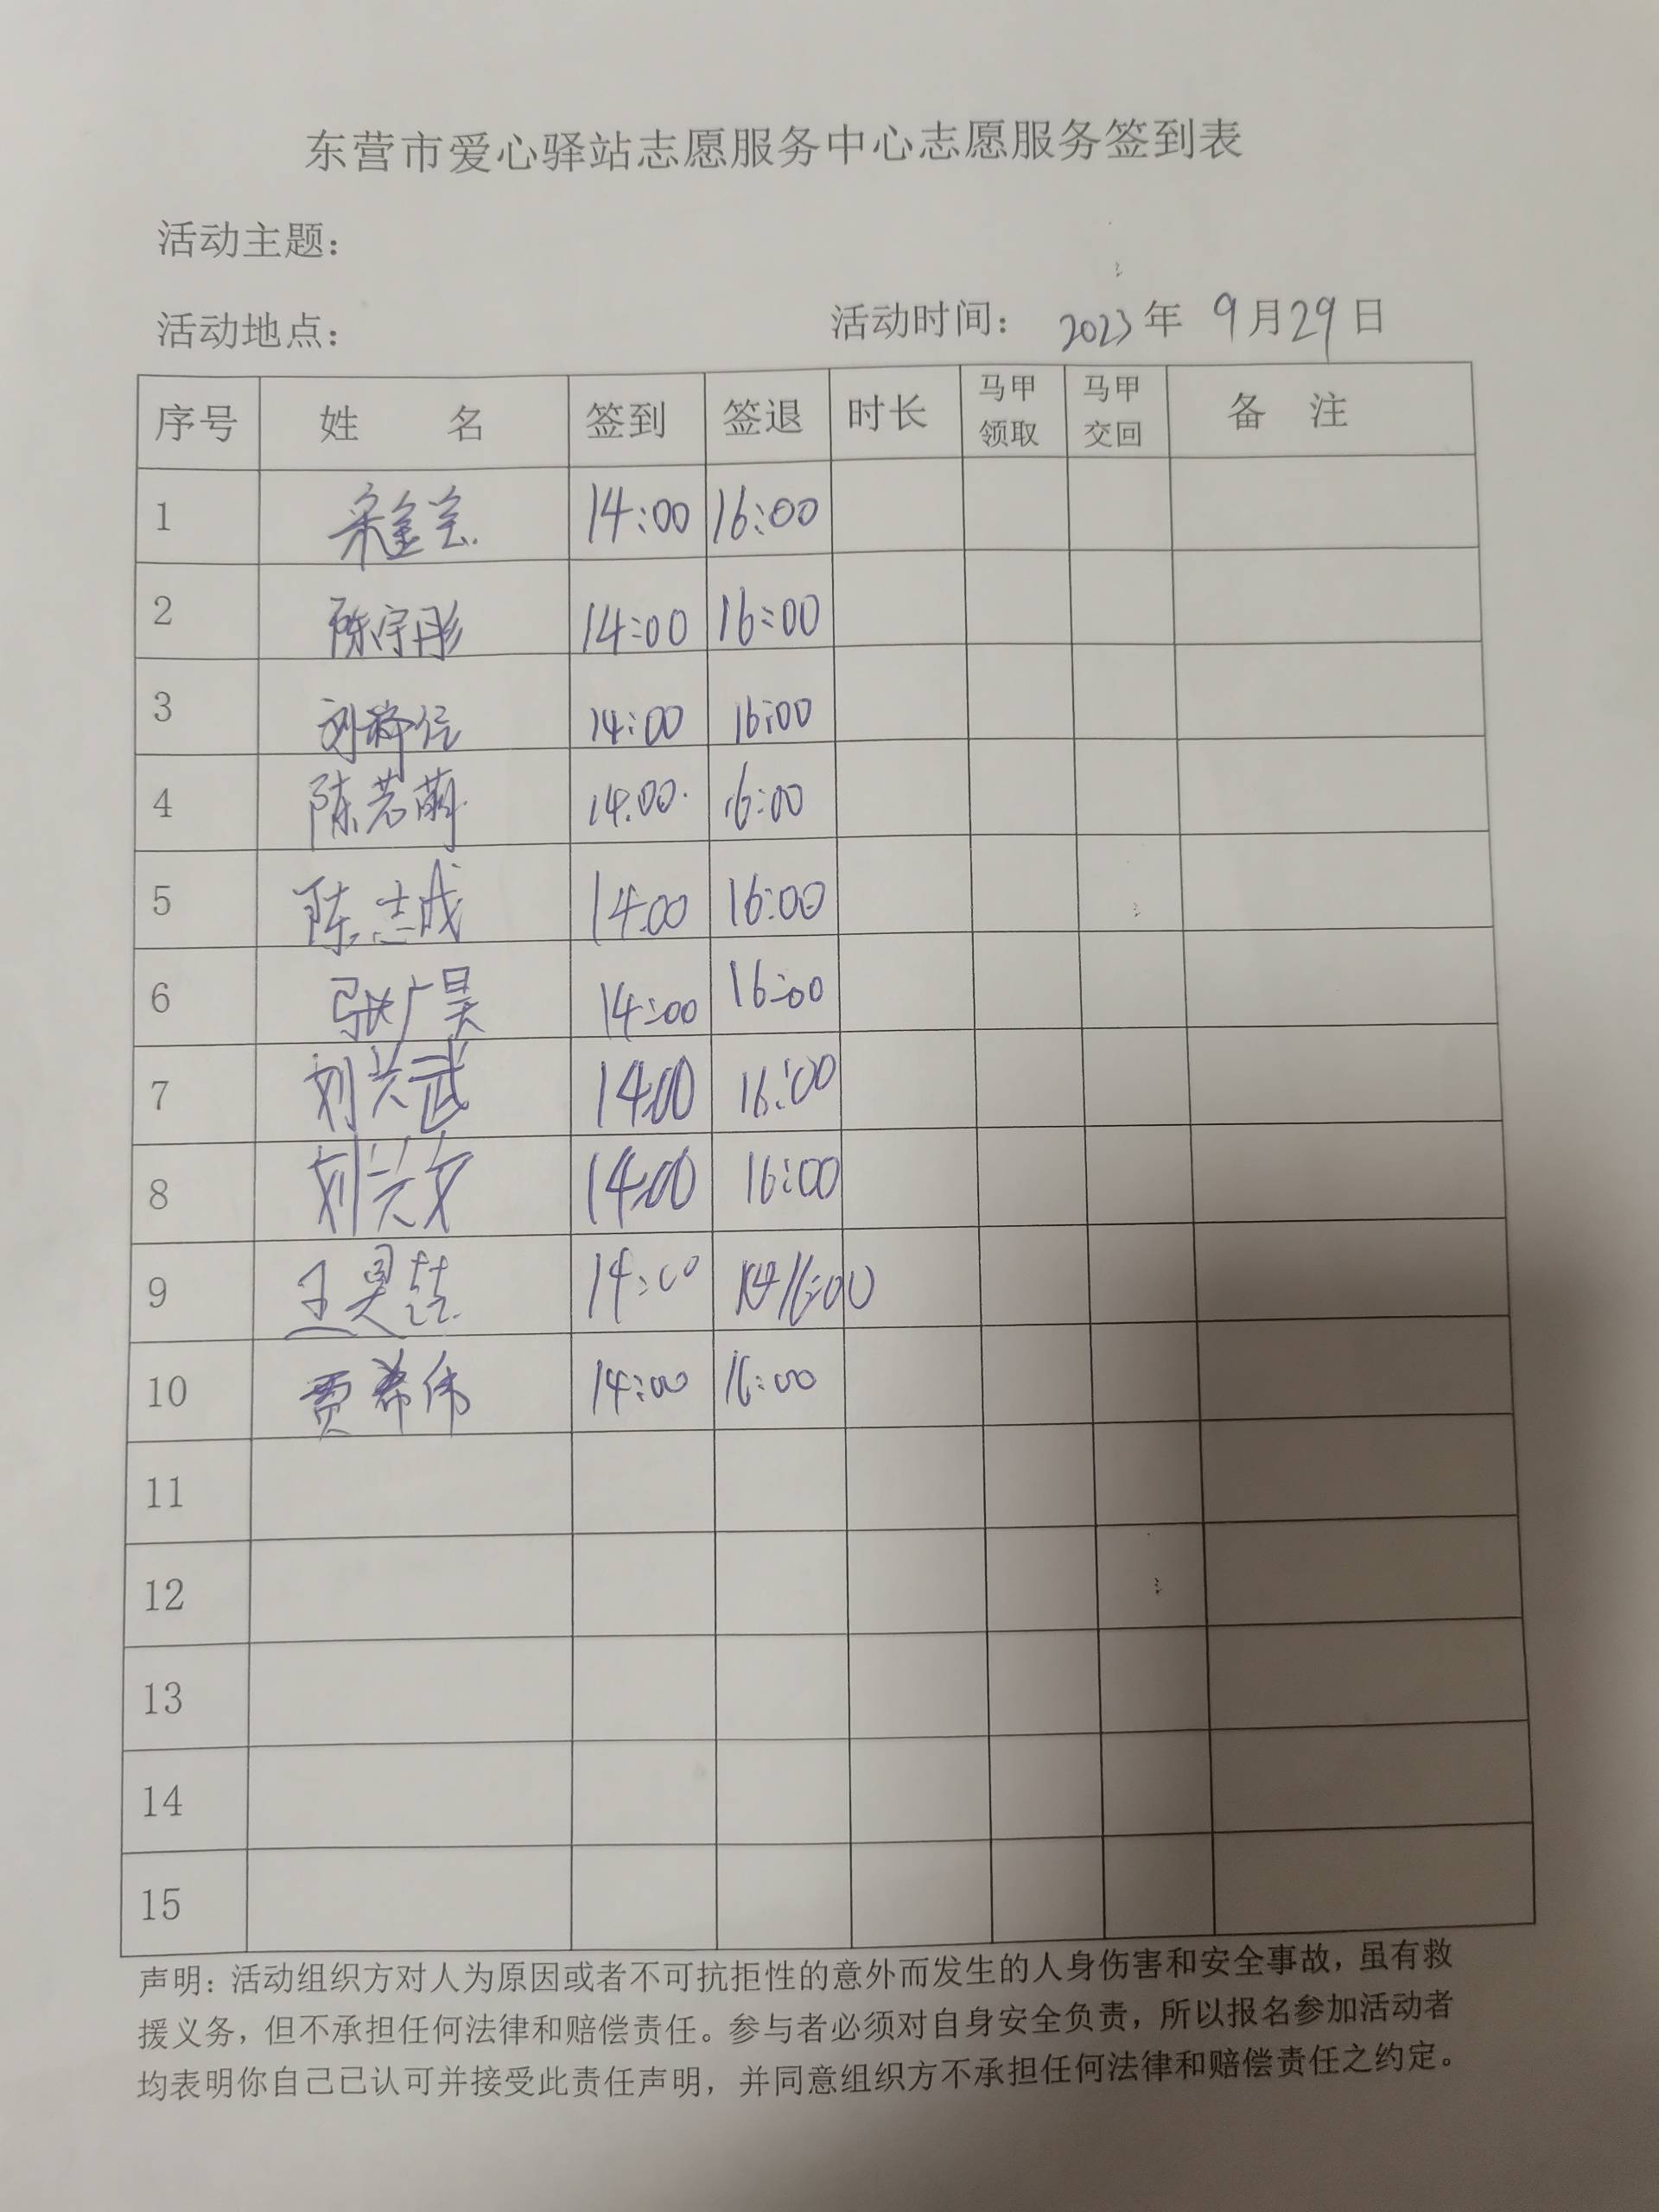 东营市爱心驿站志愿服务中心志愿服务签到表
活动主题：
活动地点： 活动时间： 2023年 9月29日
序号 姓 名 签到 签退 时长 马甲领取 马甲交回 备 注
1 14:00 16:00
2 陈宇彤 14:00 16:00
3 刘 14:00 16:00
4 陈若萌 14:00 16:00
5 陈志成 14:00 16:00
6 张广昊 14:00 16:00
7 刘兴武 14:00 16:00
8 刘兴文 14:00 16:00
9 王昊喆 14:00 16:00
10 贾希伟 14:00 16:00
11
12
13
14
15
声明：活动组织方对人为原因或者不可抗拒性的意外而发生的人身伤害和安全事故，虽有救
援义务，但不承担任何法律和赔偿责任。参与者必须对自身安全负责，所以报名参加活动者
均表明你自己已认可并接受此责任声明，并同意组织方不承担任何法律和赔偿责任之约定。